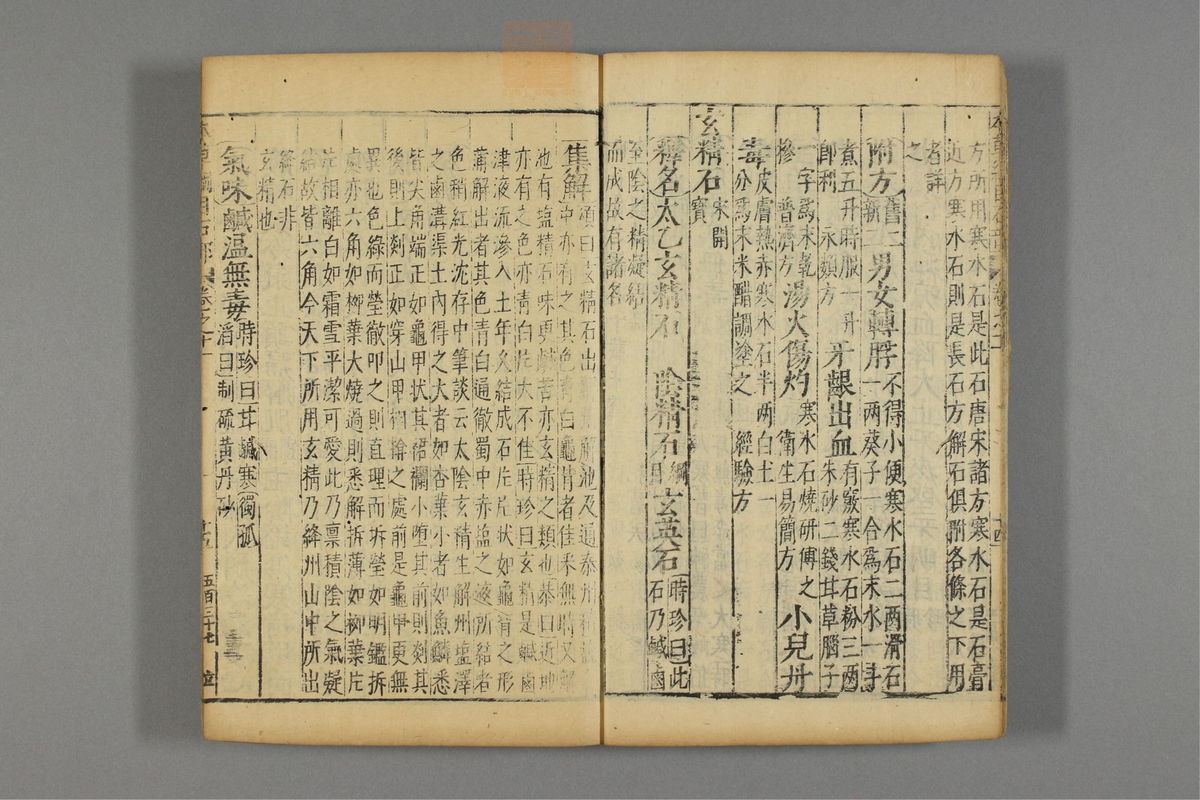 方所用寒水石是此石唐宋諸方寒水石是石膏
近方寒水石則是長石方解石俱附各條之下用
者詳
之
附方舊二新二男女轉脬不得小便寒水石二兩滑石
一兩葵子一合為末水一斗
煮五升時服一升
即利 永類方牙齦出血有竅寒水石粉三兩
朱砂二錢甘草腦子
一字為末乾
摻 普濟方湯火傷灼寒水石燒研傅之
衛生易簡方小兒丹
毒皮膚熱赤寒水石半兩白土一
分為末米醋調塗之 經驗方
玄精石宋開
寶
釋名太乙玄精石 陰精石綱
目玄英石時珍曰此
石乃鹹鹵
至陰之精凝結
而成故有諸名
集解頌曰玄精石出 解池及通泰州
中亦有之其色青白龜背者佳采無時又解
池有塩精石味更鹹苦亦玄精之類也恭曰近地
亦有之色亦青白片大不佳時珍曰玄精是鹹鹵
津液流滲入土年久結成石片片狀如龜背之形
蒲解出者其色青白通徹蜀中赤塩之液所結者
色稍紅光沈存中筆談云太陰玄精生解州塩澤
之鹵溝渠土內得之大者如杏葉小者如魚鱗悉
皆尖角端正如龜甲狀其裙襴小墮其前則剡其
後則上剡正如穿山甲相掩之處前是龜甲更無
異也色綠而瑩徹叩之則直理而拆瑩如明鑑拆
處亦六角如柳葉大燒過則悉解拆薄如柳葉片
片相離白如霜雪平潔可愛此乃禀積陰之氣凝
結故皆六角今天下所用玄精乃絳州山中所出
絳石非
玄精也
氣味鹹溫無毒時珍曰甘鹹寒獨孤
滔曰制硫黃丹砂
五百三十七